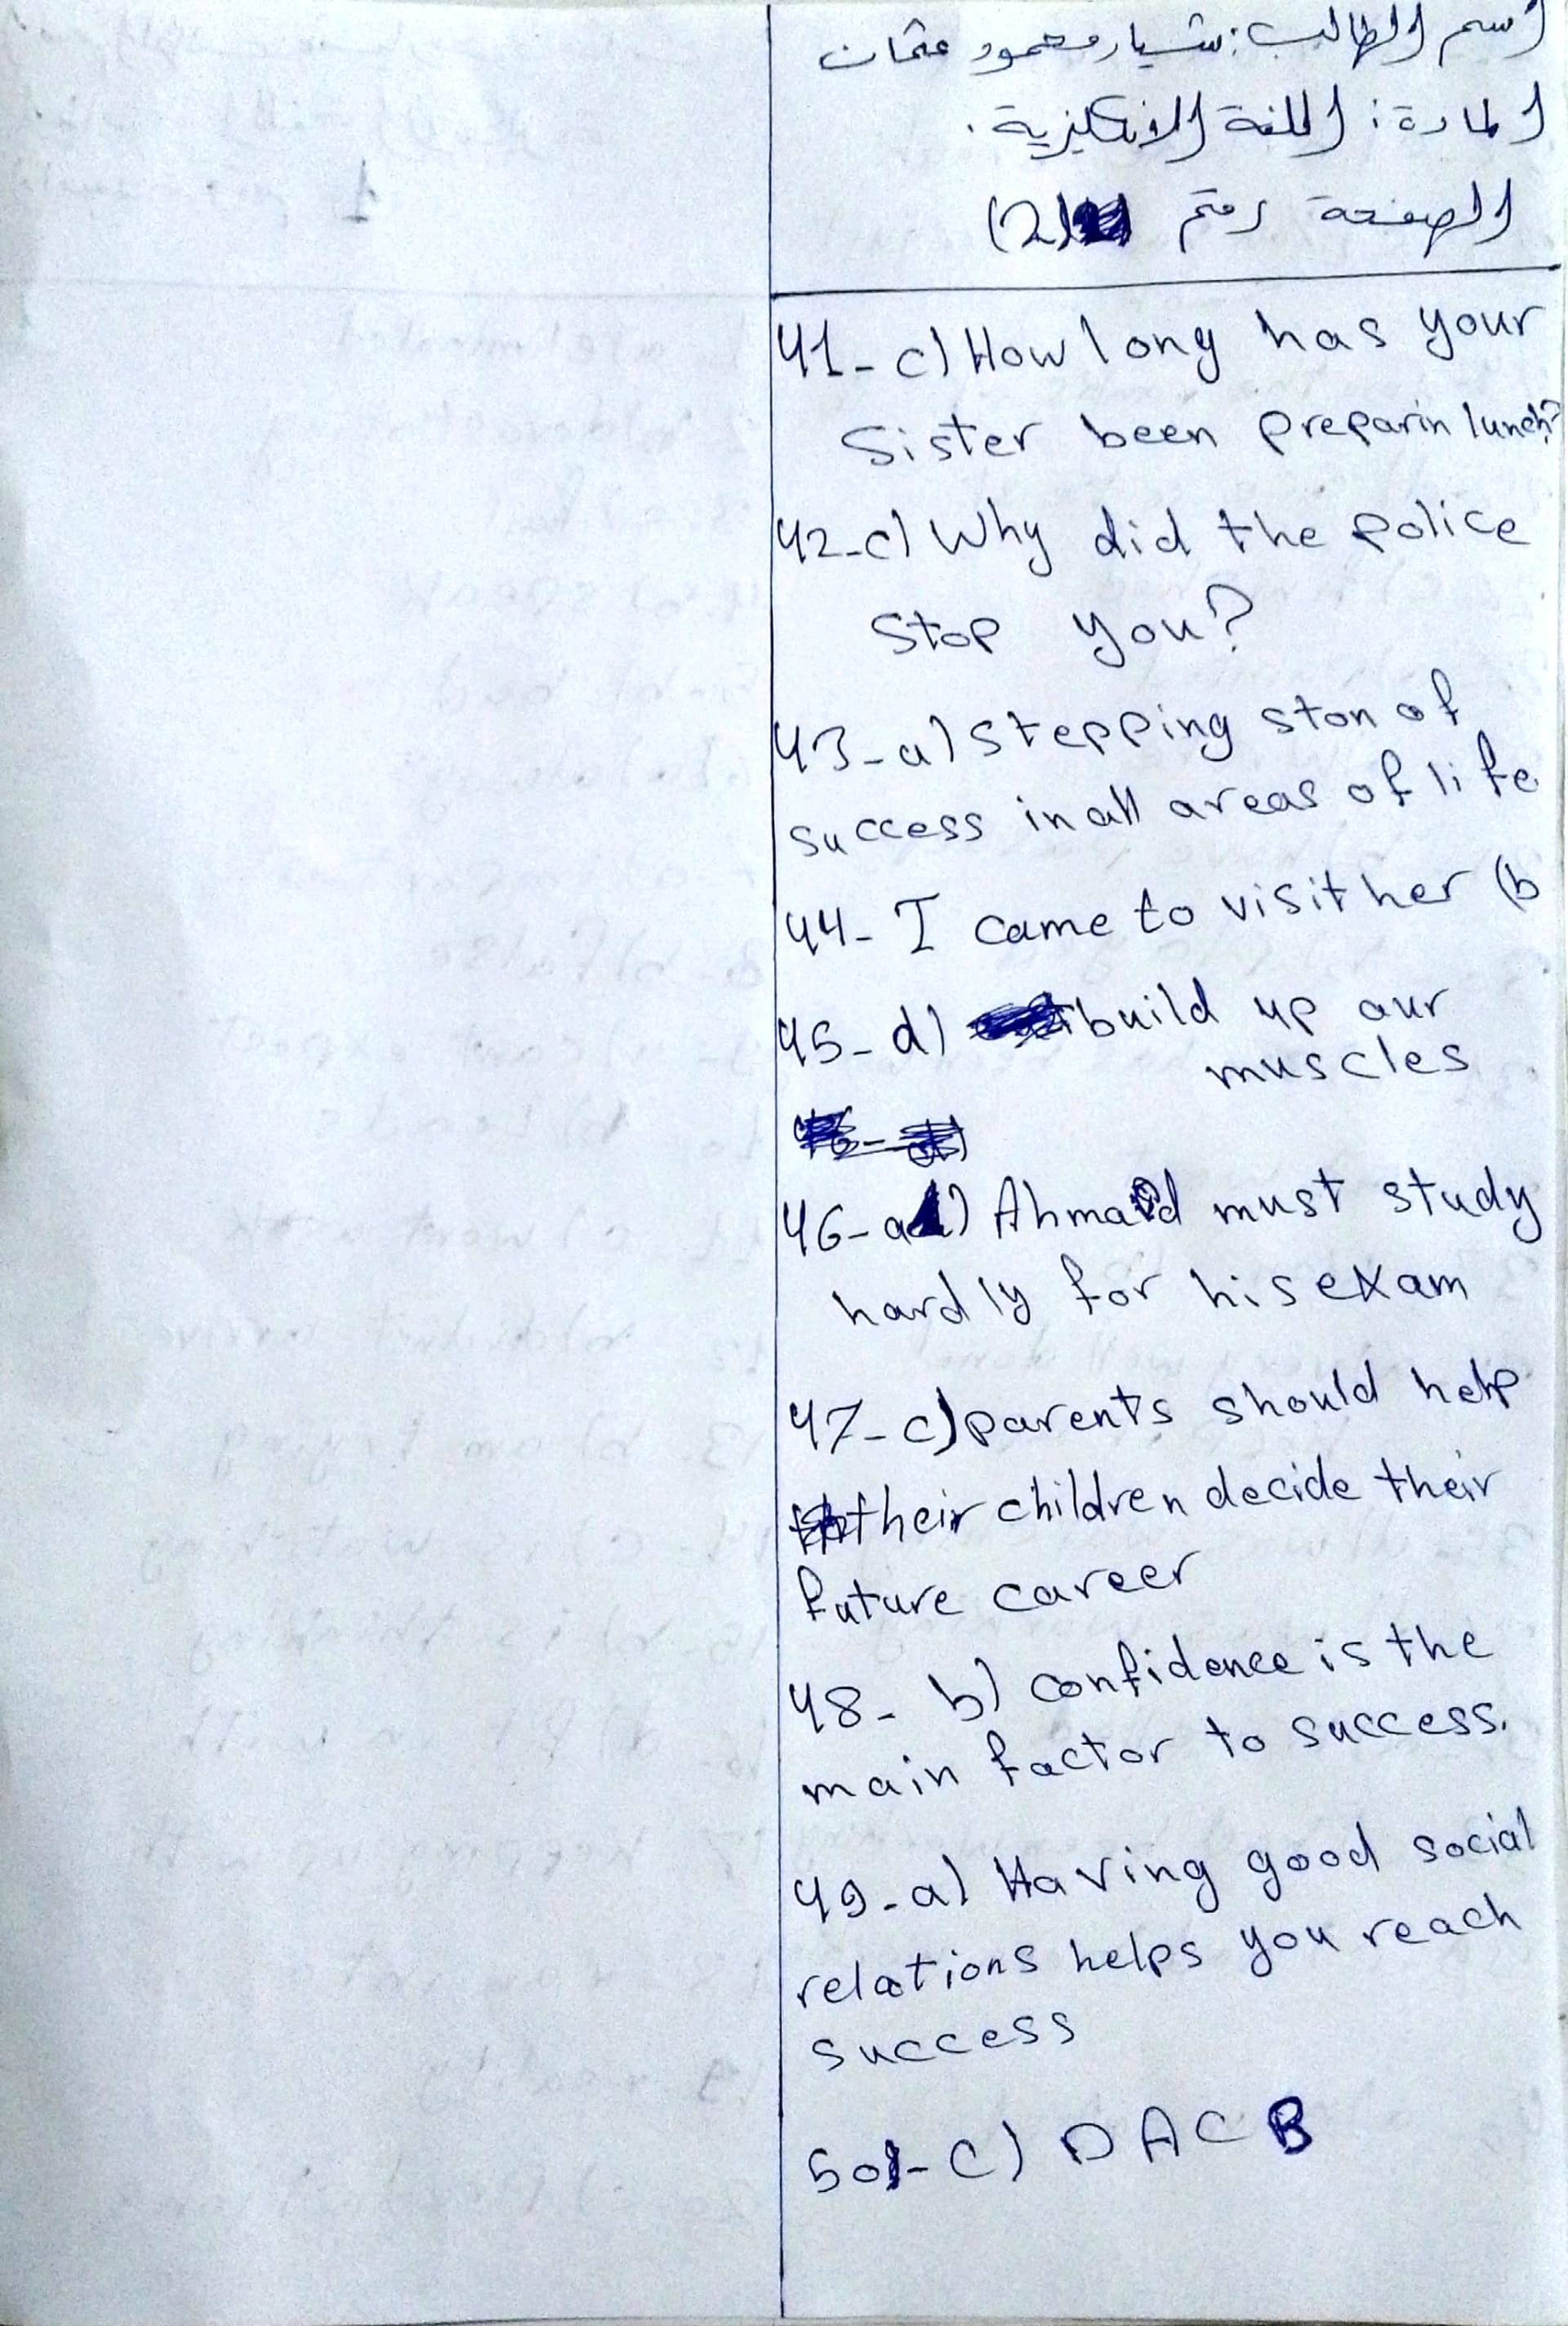 اسم الطالب: شيار محمود عثمان
المادة: اللغة الانكليزية.
الصفحة رقم (2)
41- c) How long has your
Sister been preparin lunch?
42-c) Why did the police
Stop you?
43-a) stepping ston of
success in all areas of life
44- I came to visit her (b
45- d) build up aur
muscles
46-a) Ahmad must study
hardly for his exam
47- c) parents should help
their children decide their
future career
48- b) confidence is the
main factor to success.
49-a) Having good social
relations helps you reach
success
50-C) DACB